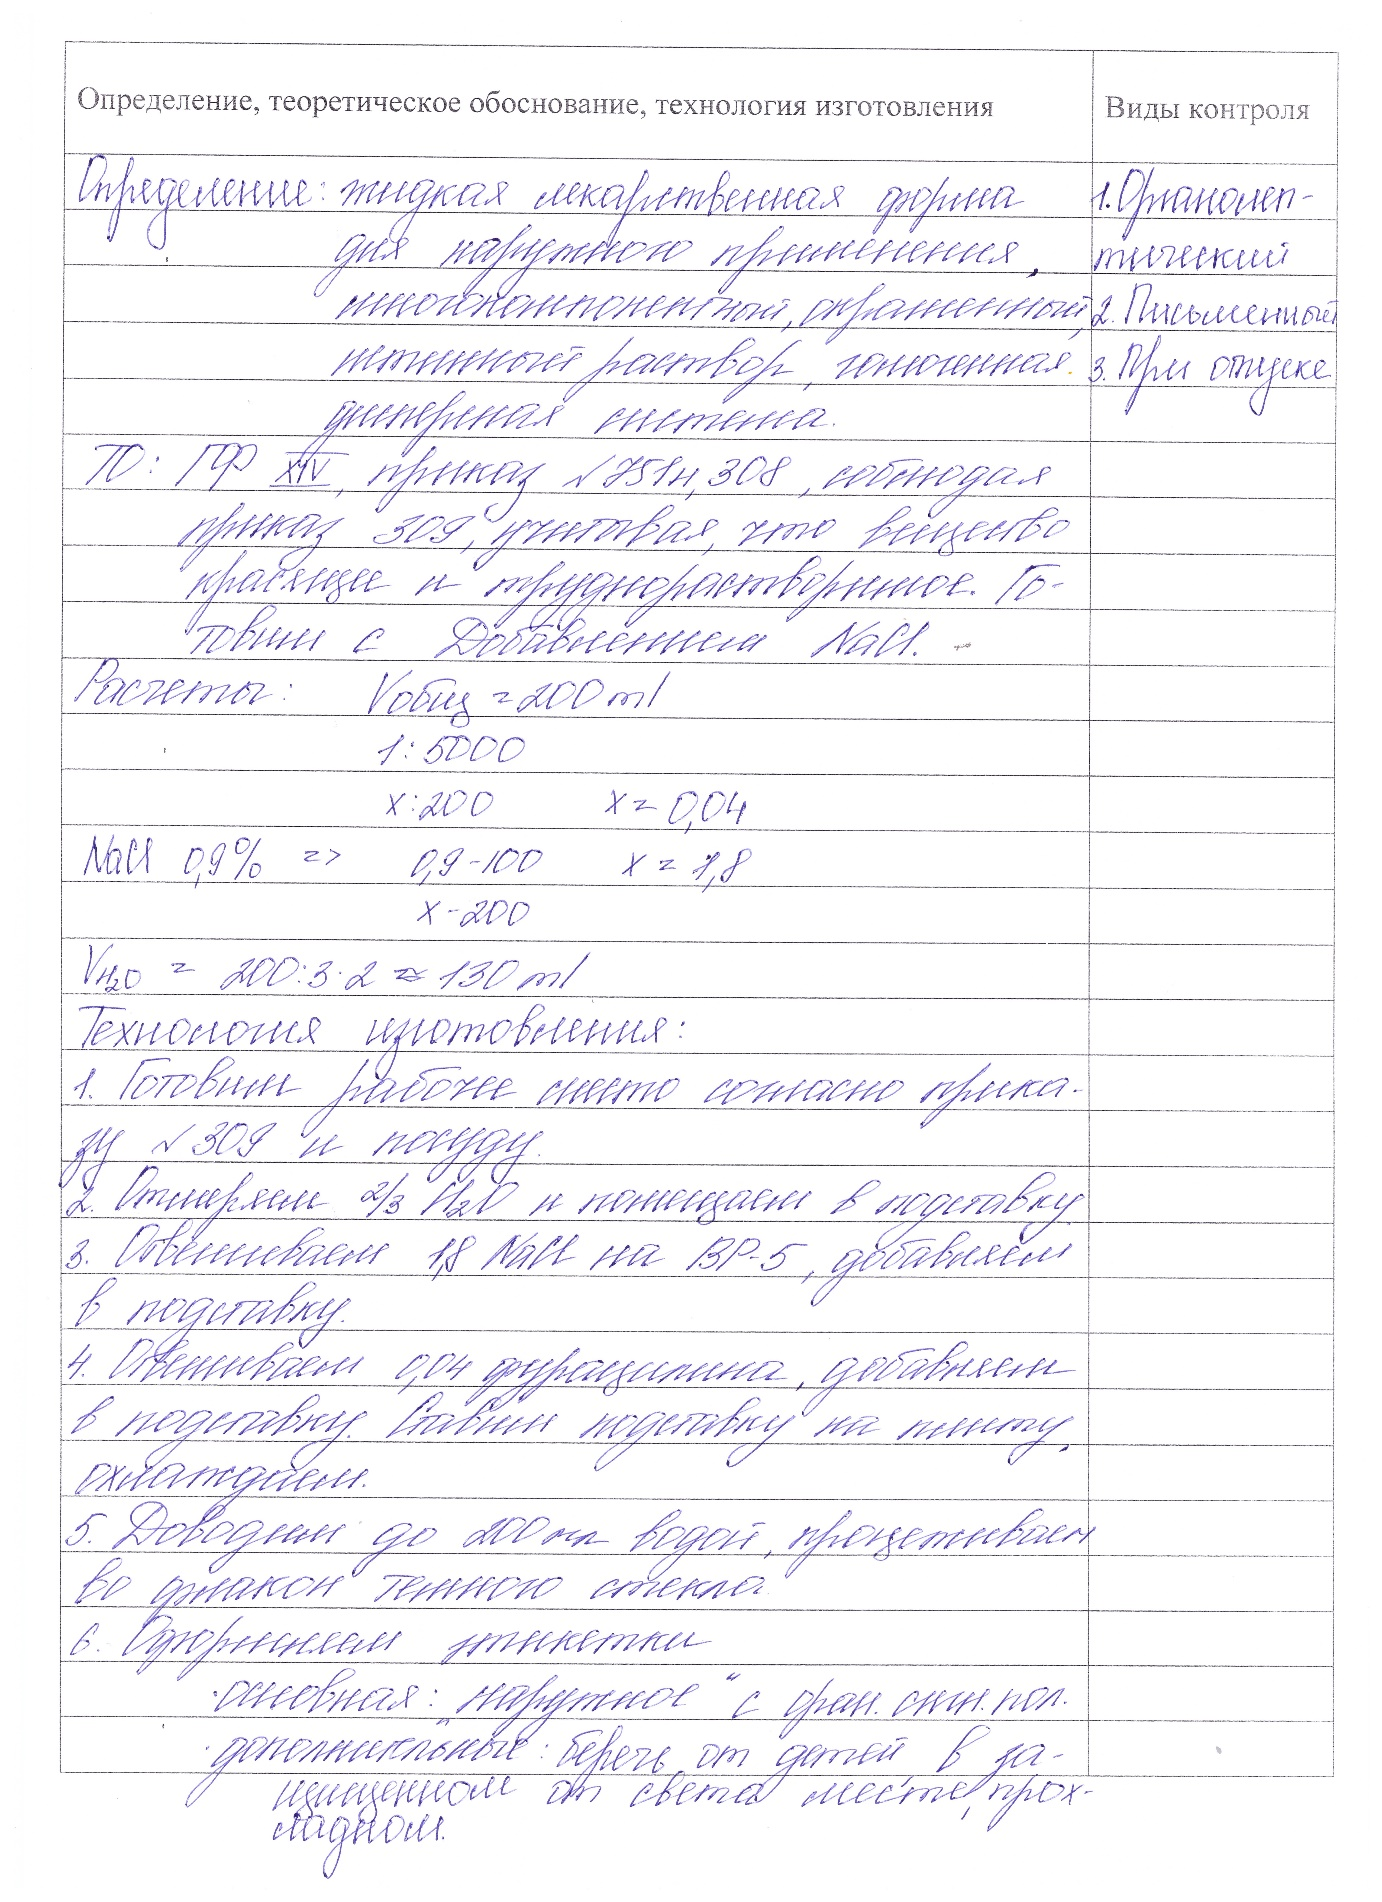 Определение, теоретическое обоснование, технология изготовления
Виды контроля
Определение: жидкая лекарственная форма
для наружного применения,
многокомпонентный, окрашенный,
истинный раствор, гомогенная
дисперсная система.
1. Органолеп-
тический
2. Письменный
3. При отпуске
ТО: ГФ XIV, приказ №751н, 308, соблюдая
приказ 309, учитывая, что вещество
красящее и труднорастворимое. Го-
товим с добавлением NaCl.
Расчеты: Vобщ = 200 ml
1 : 5000
х : 200 х = 0,04
NaCl 0,9% => 0,9 - 100 х = 1,8
х - 200
VH₂O = 200:3·2 ≈ 130 ml
Технология изготовления:
1. Готовим рабочее место согласно прика-
зу №309 и посуду.
2. Отмеряем 2/3 H₂O и помещаем в подставку
3. Отвешиваем 1,8 NaCl на ВР-5, добавляем
в подставку.
4. Отвешиваем 0,04 фурацилина, добавляем
в подставку. Ставим подставку на плиту,
охлаждаем.
5. Доводим до 200 мл водой, процеживаем
во флакон темного стекла
6. Оформляем этикетки
·основная: "наружное" с оран. сигн. пол.
·дополнительные: беречь от детей в за-
щищенном от света месте, прох-
ладном.